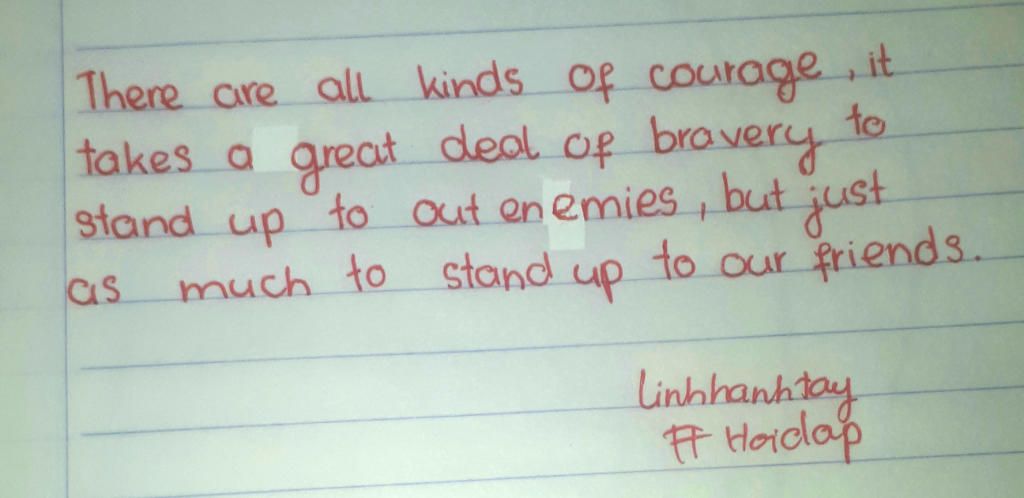 There are all kinds of courage, it
takes a great deal of bravery to
stand up to out enemies, but just
as much to stand up to our friends.
linhhanhtay
FF Hoidap